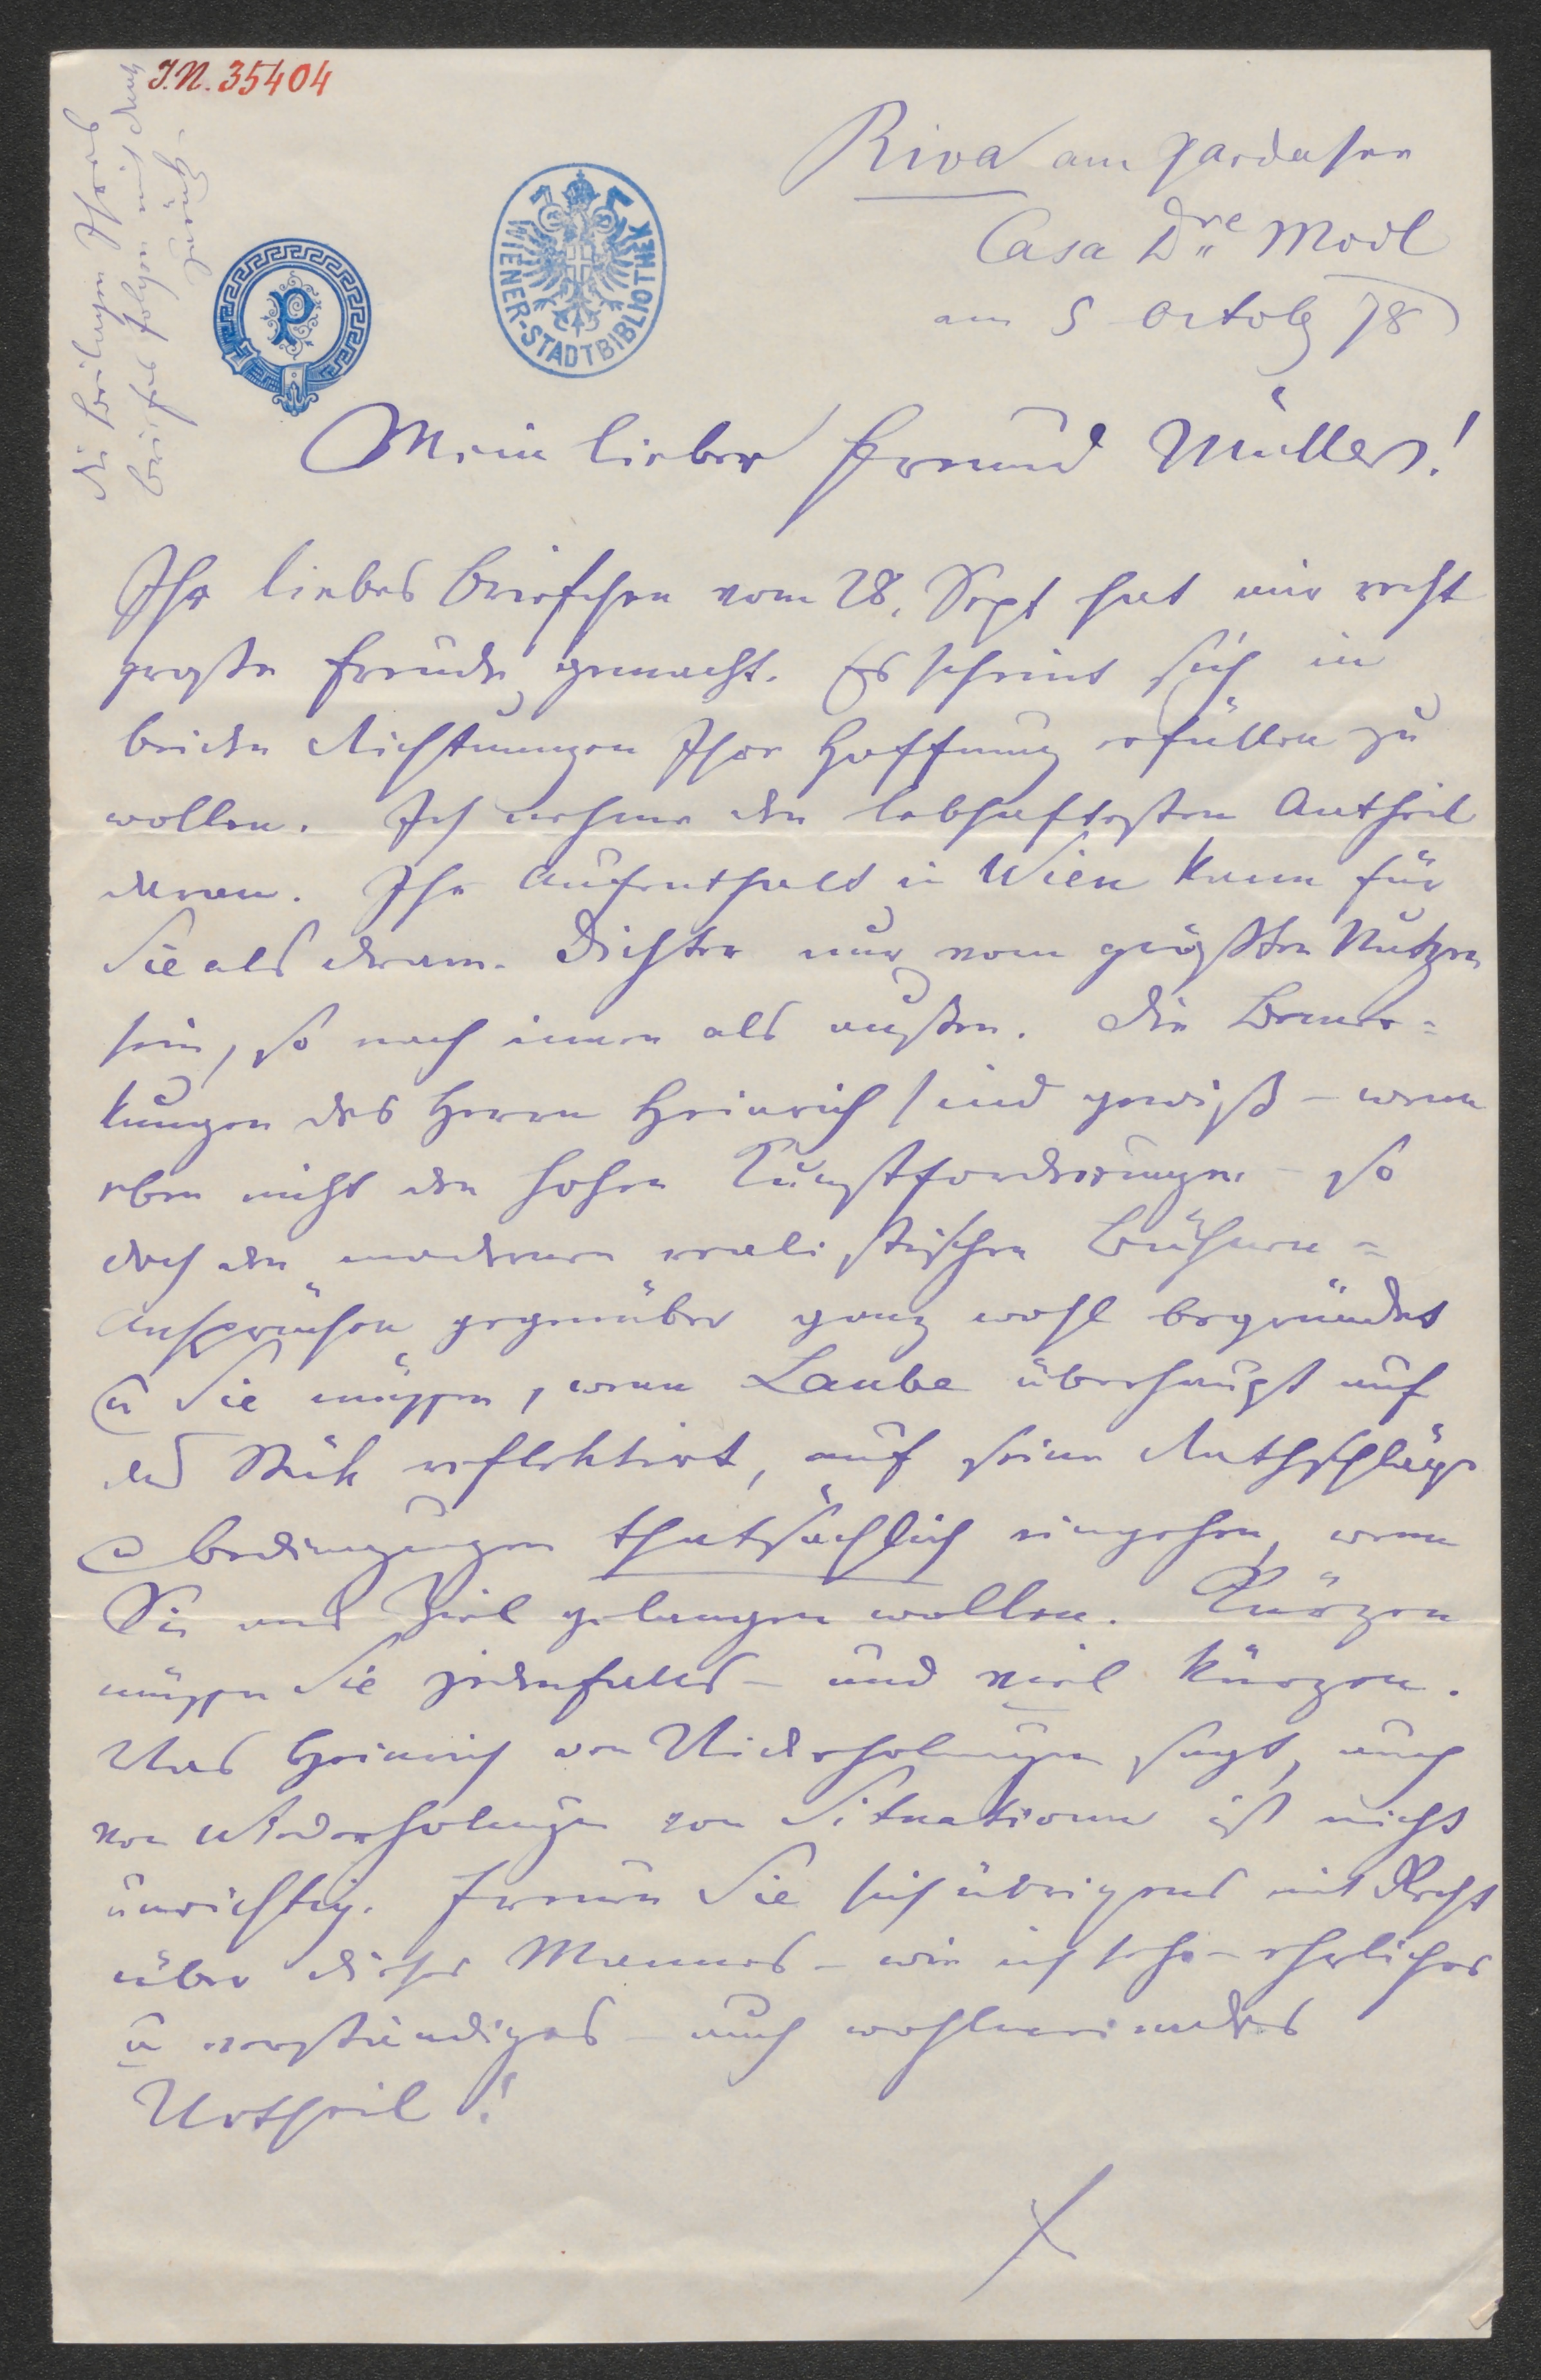 I.N. 35404
Die Beilagen Ihres
Briefes folgen mit Dank
zurück.
P
WIENER-STADTBIBLIOTHEK
Riva am Gardasee
Casa Dre Modl
am 5 Octob 78
Mein lieber Freund Müller!
Ihr liebes Briefchen vom 28. Sept hat mir recht
große Freude gemacht. Es scheint sich in
beiden Richtungen Ihre Hoffnung erfüllen zu
wollen. Ich nehme den lebhaftesten Antheil
daran. Ihr Aufenthalt in Wien kann für
Sie als dram. Dichter nur vom größten Nutzen
sein, so nach innen als außen. Die Bemer=
kungen des Herrn Heinrich sind gewiß – wenn
eben nicht den hohen Kunstforderungen – so
doch den modernen realistischen Bühnen=
Ansprüchen gegenüber ganz wohl begründet
u Sie müssen, wenn Laube überhaupt auf
das Stück reflektirt, auf seine Rathschläge
u Bedingungen thatsächlich eingehen, wenn
Sie ans Ziel gelangen wollen. Kürzen
müssen Sie jedenfalls – und viel kürzen.
Was Heinrich von Wiederholungen sagt, auch
von Wiederholungen von Situationen ist nicht
unrichtig. Freuen Sie sich übrigens mit Recht
über dieses Mannes – wie ich sehe – ehrliches
u verständiges – auch wohlmeinendes
Urtheil!